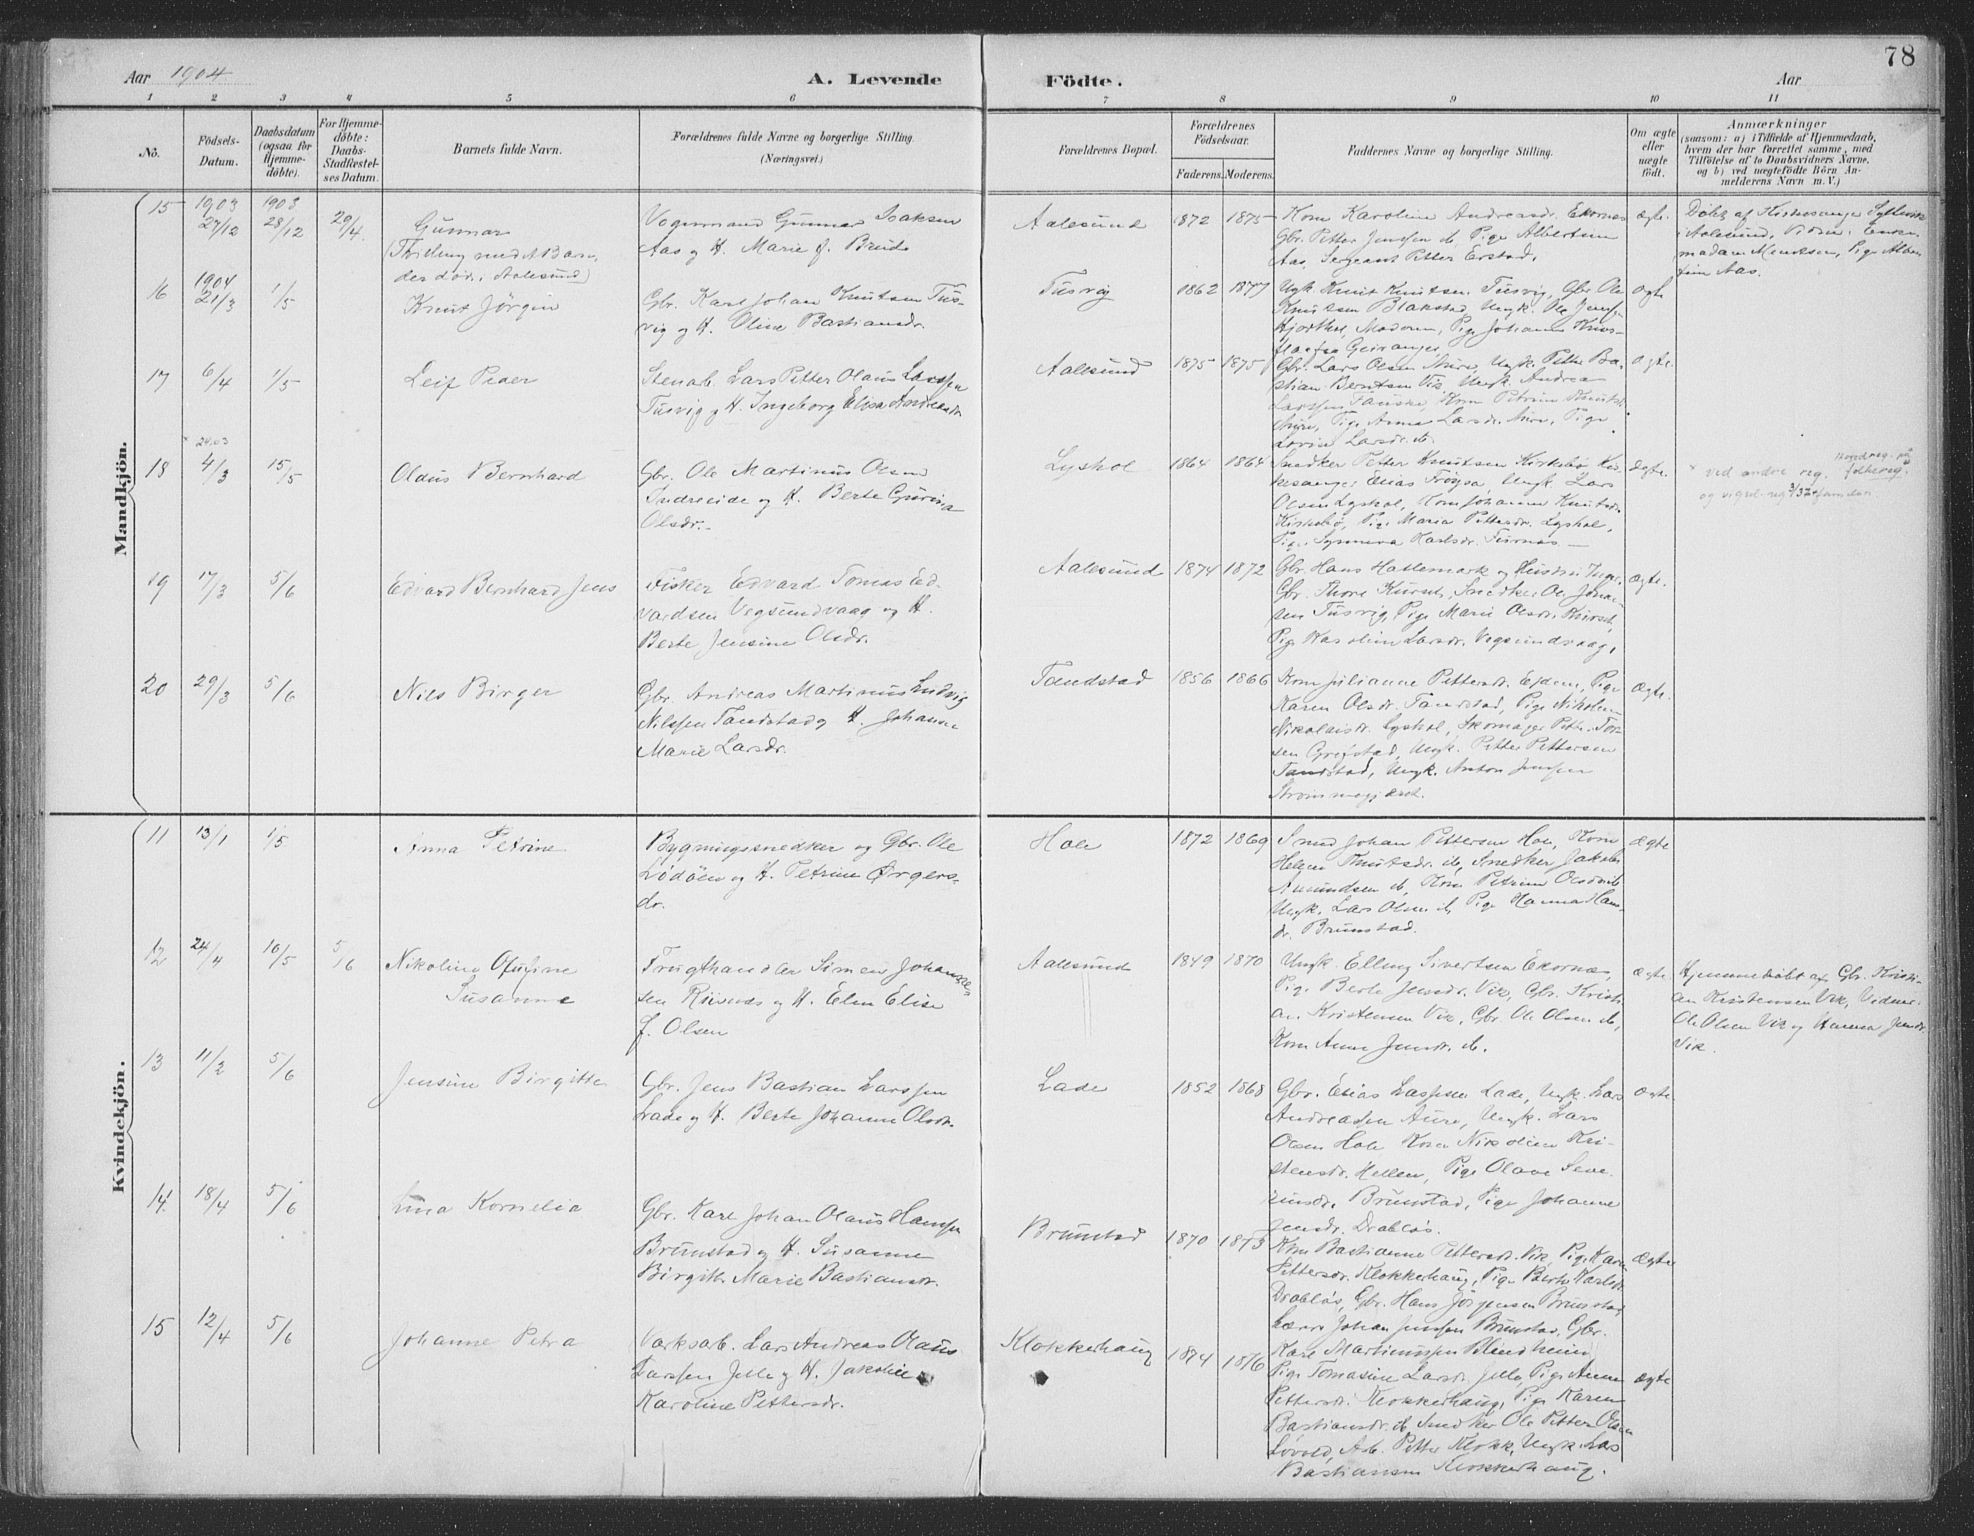 78
Aar 1904
A. Levende Födte.
Aar
1 2 3 4 5 6 7 8 9 10 11
No.
Födsels-
Datum.
Daabsdatum
(ogsaa for
Hjemme-
döbte).
For Hjemme-
döbte:
Daabs-
Stadfæstel-
ses Datum.
Barnets fulde Navn.
Forældrenes fulde Navne og borgerlige Stilling.
(Næringsvei.)
Forældrenes Bopæl.
Forældrenes
Födselsaar.
Faderens. Moderens.
Faddernes Navne og borgerlige Stilling.
Om ægte
eller
uægte
födt.
Anmærkninger
(saasom: a) i Tilfælde af Hjemmedaab,
hvem der har forrettet samme, med
Tilföielse af to Daabsvidners Navne,
og b) ved uægtefödte Börn An-
melderens Navn m. V.)
Mandkjön.
15
1903
27/12
1903
28/12
29/4.
Gunnar
(Tvilling med
der död i Aalesund)
Vognmand Gunnar Isaksen
Aas og H. Marie f.
Aalesund
1872 1875
Kone Karoline Andreasdr. Ekornes
Gbr. Petter Jenssen ib, Pige Albertine
Aas, Sergeant Petter Erstad.
ægte.
Döbt af Kirkesanger
i Aalesund,
madam Pige Alber
tine Aas.
16
1904
21/3
1/5
Knut Jörgen
Gbr. Karl Johan Knutsen Tus-
vig og H. Oline Bastiansdr.
Tusvig
1862 1877
Ungk. Knut Knutsen Tusvig, Gbr. Ole
Knutsen Blakstad, Ungk. Ole
Hjorthol, Moderen, Pige Johanne
Geiranger
ægte
17
6/4
1/5
Leif Peder
Stenarb. Lars Petter Olaus Larssen
Tusvig og H. Ingeborg Elisa Andreasdr.
Aalesund
1875 1875
Gbr. Lars Olsen Aure, Ungk. Petter Ba-
stian Berntsen Vik, Ungk. Andreas
Larssen Kone Petrine Knutsdr.
Aure, Pige Anna Larsdr. Aure, Pige
Larsdr. ib.
ægte.
18
4/3
15/5
Olaus Bernhard
Gbr. Ole Martinus Olsen
Indreeide og H. Berte Gurina
Olsdr.
Lyshol
1864 1864
Snedker Petter Knutsen Kirkebö, Kir-
kesanger Elias Ungk. Lars
Olsen Lyshol, Kone Johanne Knutsdr.
Kirkebö, Pige Maria Pettersdr. Lyshol,
Pige Synneva Karlsdr.
ægte.
ved andre reg.
og vigsel
19
17/3
5/6
Edvard Bernhard Jens
Fisker Edvard Tomas Ed-
vardsen Vegsundvaag og H.
Berte Jensine Olsdr.
Aalesund
1874 1872
Gbr. Hans Hatlemark og Hustru Inger,
Gbr. Thore Kurset, Snedker Ole Johan-
sen Tusvig, Pige Marie Olsdr. Kurset,
Pige Larsdr. Vegsundvaag,
ægte.
20
29/3
5/6
Nils Birger
Gbr. Andreas Martinus Ludvig
Nilssen Tandstad og H. Johanne
Marie Larsdr.
Tandstad
1856 1866
Kone Juliane Pettersdr. Pige
Karen Olsdr. Tandstad, Pige
Nikolaisdr. Lyshol, Skomager Petter
sen Grefstad, Ungk. Petter Pettersen
Tandstad, Ungk. Anton Jenssen
ægte.
Kvindekjön.
11
13/1
1/5
Anna Petrine
Bygningssnedker og Gbr. Ole
Lödöen og H. Petrine
dr.
Hole
1872 1869
Smed Johan Pettersen Hole, Kone
Helga Knutsdr. ib, Snedker Jakob
Amundsen ib, Kone Petrine
Ungk. Lars Olsen ib, Pige Hanna
dr. Brunstad.
ægte
12
24/4
10/5
5/6
Nikoline
Susanne
Frugthandler Simen Johannes-
sen og H. Elen Elise
f. Olsen
Aalesund
1849 1870
Ungk. Elling Sivertsen Ekornæs,
Pige Berte Jensdr. Vik, Gbr. Kristi-
an Kristensen Vik, Gbr Ole Olsen ib,
Kone Anne Jensdr. ib.
ægte
Hjemmedöbt af Gbr. Kristi-
an Kristensen Vik, Vidner:
Ole Olsen Vik og Hanna Jensdr.
Vik.
13
11/2
5/6
Jensine Birgitte
Gbr. Jens Bastian Larssen
Lade og H. Berte Johanne Olsdr.
Lade
1852 1868
Gbr. Elias Lassesen Lade, Ungk. Lars
Andreassen Aure, Ungk. Lars
Olsen Hole, Kone Nikoline Kri-
stensdr. Hellen, Pige Olave
Brunstad, Pige Johanne
Jensdr. Drablös.
ægte.
14
18/4
5/6
Lina Kornelia
Gbr. Karl Johan Olaus Hanssen
Brunstad og H. Susanne
Birgitte Marie Bastiansdr.
Brunstad
1870 1873
Kone Bastianne Pettersdr. Vik, Pige Karen
Pettersdr. Klokkerhaug, Pige Berte Karlsdr.
Drablös, Gbr. Hans Jörgensen Brunstad,
Johan Jenssen Brunstad, Gbr.
Karl Martinussen Blindheim
ægte
15
12/4
5/6
Johanne Petra
Værksarb. Lars Andreas Olaus
Larssen Jelle og H. Jakobine
Karoline Pettersdr.
Klokkerhaug
1874 1876
Pige Tomasine Larsdr. Jelle, Pige Anne
Pettersdr. Klokkerhaug, Pige Karen
Bastiansdr. ib, Snedker Ole Petter Olsen
Lövold, Arb. Petter Klokk, Ungk. Lars
Bastiansen Klokkerhaug.
ægte